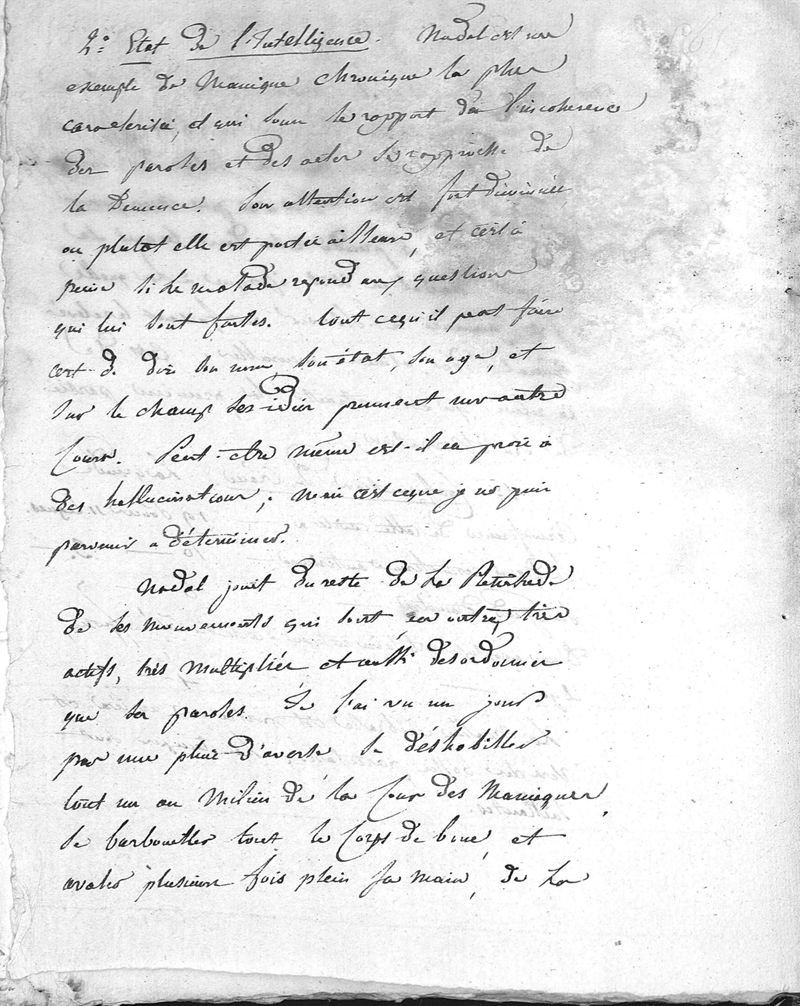 2° Etat de l'Intelligence. Nadal est un
exemple de Manique chronique la plus
caracterisée, et qui sous le rapport de l'incoherence
des paroles et des actes se rapproche de
la Demence. Son attention est fort diminuée
ou plutot elle est portée ailleurs, et c'est à
peine si le malade repond aux questions
qui lui sont faites. Tout cequ'il peut faire
c'est de dire son nom, son état, son age, et
sur le champ ses idées prennent un autre
Cours. Peut-etre même est-il en proie à
des hallucinations ; mais c'est ceque je ne puis
parvenir a déterminer.
Nadal jouit du reste de la Plenitude
de ses mouvements qui sont en outre, très
actifs, très multipliés et aussi desordonnés
que ses paroles. Je l'ai vu un jour
par une pluie d'averse se déshabiller
tout nu au Milieu de la Cour des Maniaques,
se barbouiller tout le Corps de boue, et
avaler plusieurs fois plein sa main, de la